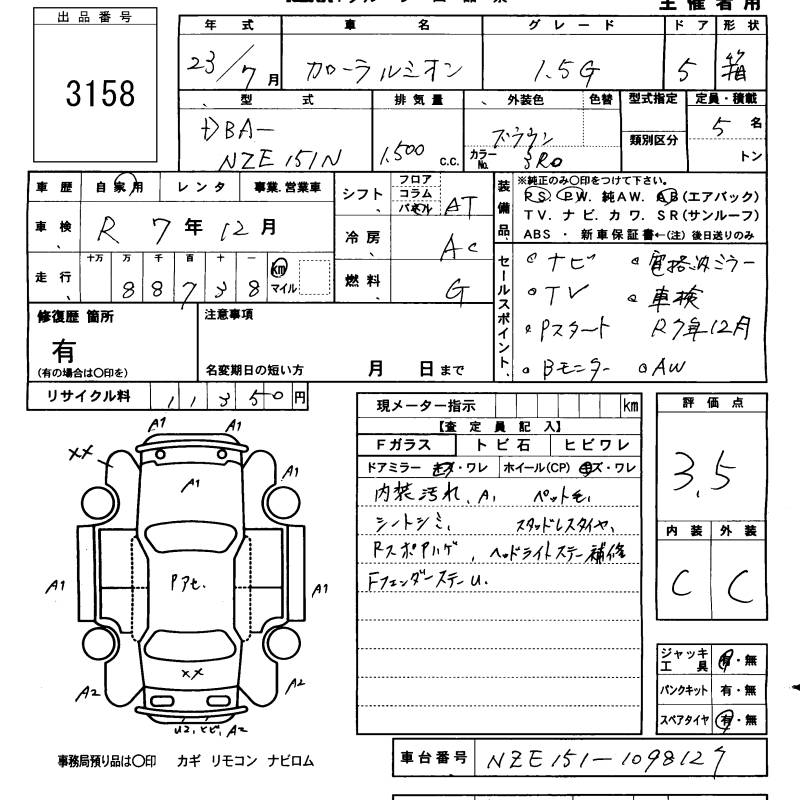 主催者用
出品番号
3158
年式 車名 グレード ドア 形状
23/7月 カローラルミオン 1.5G 5 箱
型式 排気量 外装色 色替 型式指定 定員・積載
DBA-
NZE151N 1,500 c.c. カラーNo. 3R0 類別区分 5名
トン
車歴 自家用 レンタ 事業.営業車
シフト フロア コラム パネル AT
車検 R 7年12月
冷房 AC
走行 十万 万 千 百 十 一 km マイル
8 8 7 3 8
燃料 G
装備品
※純正のみ〇印をつけて下さい。
PS. PW. 純AW. AB(エアバック)
TV. ナビ. カワ. SR(サンルーフ)
ABS ・ 新車保証書←(注) 後日送りのみ
セールスポイント
ナビ 電格ミラー
TV 車検
Pスタート R7年12月
Bモニター AW
修復歴 箇所
有
(有の場合は〇印を)
注意事項
名変期日の短い方 月 日まで
リサイクル料 11350円
現メーター指示 km
【査定員記入】
Fガラス トビ石 ヒビワレ
ドアミラー キズ・ワレ ホイール(CP) キズ・ワレ
内装汚れ、A1 ペット毛、
シートシミ、 スタッドレスタイヤ、
Rスポアハゲ、 ヘッドライトステー補修
FフェンダーステーU.
評価点
3.5
内装 外装
C C
A1 A1
XX A1 A1
A1 Pアセ. A1
XX
A2 A2
U2, ヒビ, A2
ジャッキ工具 有・無
パンクキット 有・無
スペアタイヤ 有・無
事務局預り品は〇印 カギ リモコン ナビロム
車台番号 NZE151-1098127